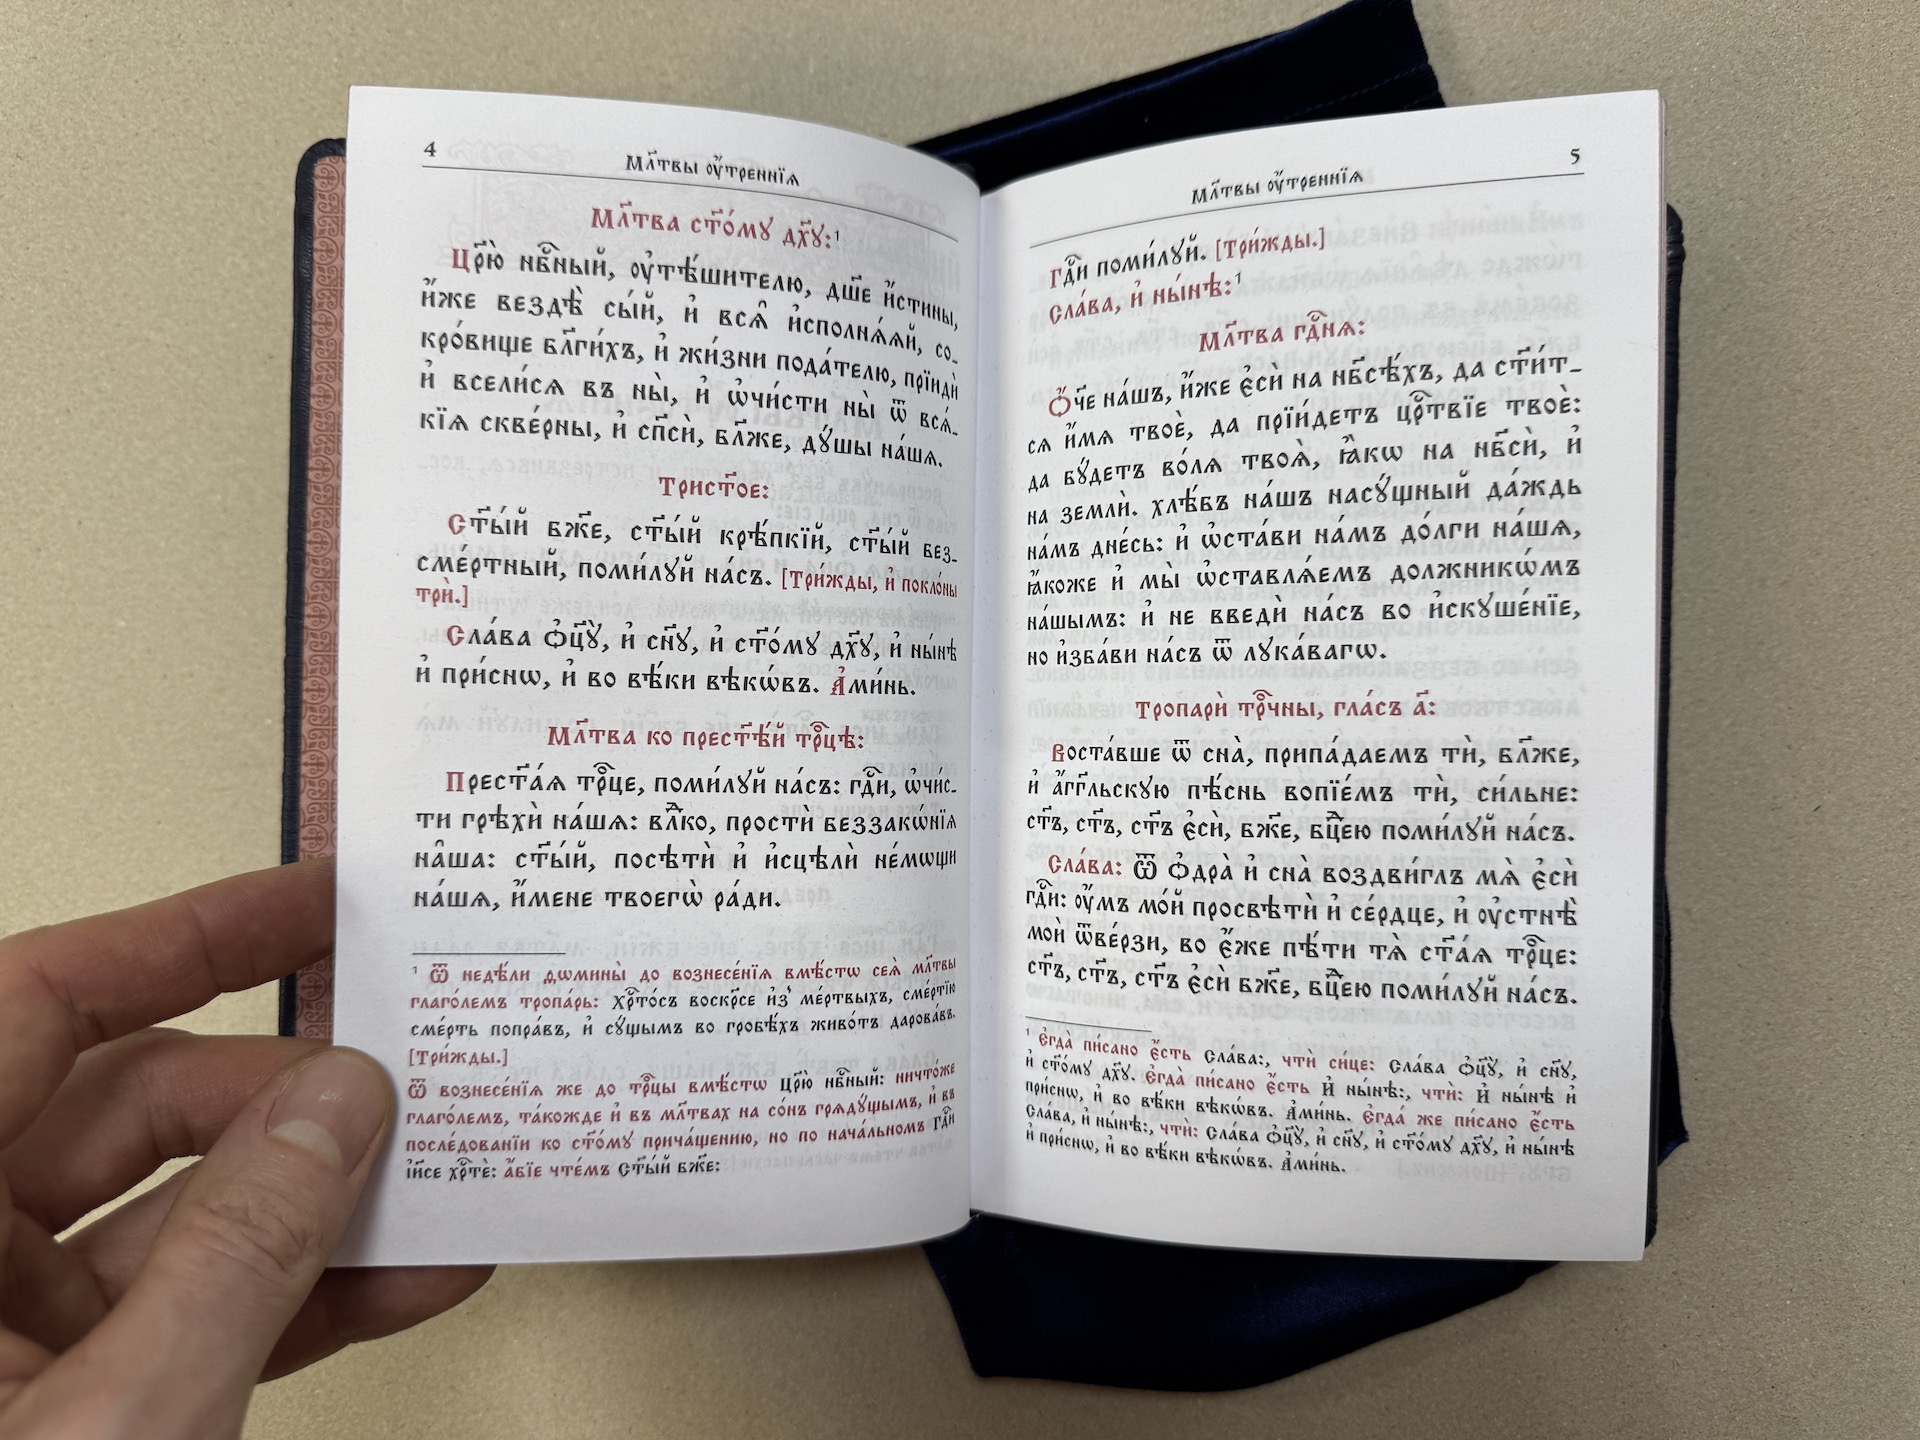 4
Мл҃твы ᲂу҆́тренніѧ
Мл҃тва ст҃о́мꙋ дх҃ꙋ:¹
Цр҃ю̀ нбⷭ҇ный, ᲂу҆тѣ́шителю, дш҃е и҆́стины,
и҆́же вездѣ̀ сы́й, и҆ всѧ̑ и҆сполнѧ́ѧй, со-
кро́вище бл҃ги́хъ, и҆ жи́зни пода́телю, прїидѝ
и҆ всели́сѧ въ ны̀, и҆ ѡ҆чи́сти ны̀ ѿ всѧ́-
кїѧ скве́рны, и҆ сп҃сѝ, бл҃же, дꙋ́шы на́шѧ.
Трист҃о́е:
Ст҃ы́й бж҃е, ст҃ы́й крѣ́пкїй, ст҃ы́й без-
сме́ртный, поми́лꙋй на́съ. [Три́жды, и҆ покло́ны
трѝ.]
Сла́ва ѻ҆ц҃ꙋ̀, и҆ сн҃ꙋ, и҆ ст҃о́мꙋ дх҃ꙋ, и҆ ны́нѣ
и҆ при́снѡ, и҆ во вѣ́ки вѣкѡ́въ. А҆ми́нь.
Мл҃тва ко прест҃ѣ́й трⷪ҇цѣ:
Прест҃а́ѧ трⷪ҇це, поми́лꙋй на́съ: гдⷭ҇и, ѡ҆чи́с-
ти грѣхѝ на́шѧ: влⷣко, простѝ беззакѡ́нїѧ
на̑ша: ст҃ы́й, посѣтѝ и҆ и҆сцѣлѝ не́мѡщи
на́шѧ, и҆́мене твоегѡ̀ ра́ди.
¹ Ѿ недѣ́ли ѳѡмины̀ до вознесе́нїѧ вмѣ́стѡ сеѧ̀ мл҃твы
глаго́лемъ тропа́рь: Хрⷭ҇то́съ воскр҃се и҆з̾ ме́ртвыхъ, сме́ртїю
сме́рть попра́въ, и҆ сꙋ́щымъ во гробѣ́хъ живо́тъ дарова́въ.
[Три́жды.]
Ѿ вознесе́нїѧ же до трⷪ҇цы вмѣ́стѡ Цр҃ю̀ нбⷭ҇ный: ничто́же
глаго́лемъ, та́кожде и҆ въ мл҃твах на со́нъ грѧдꙋ́щымъ, и҆ въ
послѣ́дованїи ко ст҃о́мꙋ причаще́нїю, но по нача́льномъ Гдⷭ҇и
і҆и҃се хрⷭ҇тѐ: а҆́бїе чте́мъ Ст҃ы́й бж҃е:
5
Мл҃твы ᲂу҆́тренніѧ
Гдⷭ҇и поми́лꙋй. [Три́жды.]
Сла́ва, и҆ ны́нѣ:¹
Мл҃тва гдⷭ҇нѧ:
Ѻ҆́ч҃е на́шъ, и҆́же є҆сѝ на нб҃сѣ́хъ, да ст҃и́т-
сѧ и҆́мѧ твоѐ, да прїи́детъ црⷭ҇твїе твоѐ:
да бꙋ́детъ во́лѧ твоѧ̀, ꙗ҆́кѡ на нб҃сѝ, и҆
на землѝ. хлѣ́бъ на́шъ насꙋ́щный да́ждь
на́мъ дне́сь: и҆ ѡ҆ста́ви на́мъ до́лги на́шѧ,
ꙗ҆́коже и҆ мы̀ ѡ҆ставлѧ́емъ должникѡ́мъ
на́шымъ: и҆ не введѝ на́съ во и҆скꙋше́нїе,
но и҆зба́ви на́съ ѿ лꙋка́вагѡ.
Тропарѝ трⷪ҇чны, гла́съ а҃:
Воста́вше ѿ сна̀, припа́даемъ тѝ, бл҃же,
и҆ а҆́гг҃льскꙋю пѣ́снь вопїе́мъ тѝ, си́льне:
ст҃ъ, ст҃ъ, ст҃ъ є҆сѝ, бж҃е, бцⷣею поми́лꙋй на́съ.
Сла́ва: Ѿ ѻ҆дра̀ и҆ сна̀ воздви́глъ мѧ̀ є҆сѝ
гдⷭ҇и: ᲂу҆́мъ мо́й просвѣтѝ и҆ се́рдце, и҆ ᲂу҆стнѣ̀
моѝ ѿве́рзи, во є҆́же пѣ́ти тѧ̀ ст҃а́ѧ трⷪ҇це:
ст҃ъ, ст҃ъ, ст҃ъ є҆сѝ бж҃е, бцⷣею поми́лꙋй на́съ.
¹ Є҆гда̀ пи́сано є҆́сть Сла́ва:, чтѝ си́це: Сла́ва ѻ҆ц҃ꙋ̀, и҆ сн҃ꙋ,
и҆ ст҃о́мꙋ дх҃ꙋ. Є҆гда̀ пи́сано є҆́сть И҆ ны́нѣ:, чтѝ: И҆ ны́нѣ и҆
при́снѡ, и҆ во вѣ́ки вѣкѡ́въ. А҆ми́нь. Є҆гда́ же пи́сано є҆́сть
Сла́ва, и҆ ны́нѣ:, чтѝ: Сла́ва ѻ҆ц҃ꙋ̀, и҆ сн҃ꙋ, и҆ ст҃о́мꙋ дх҃ꙋ, и҆ ны́нѣ
и҆ при́снѡ, и҆ во вѣ́ки вѣкѡ́въ. А҆ми́нь.